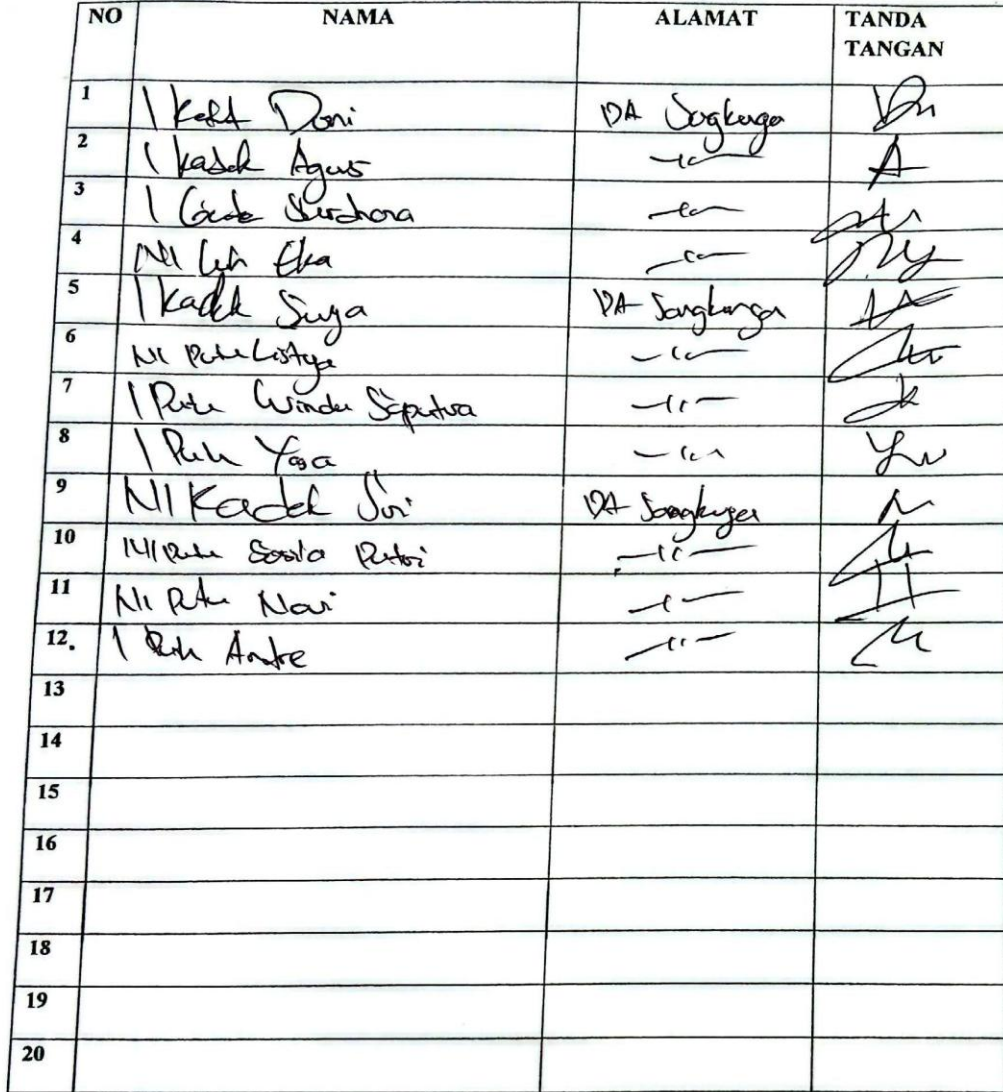 NO NAMA ALAMAT TANDA TANGAN
1 I Ketut Doni DA Sangkarga
2 I Kadek Agus —〃—
3 I Gede —〃—
4 Ni Luh Eka —〃—
5 I Kadek Surya DA Sangkarga
6 Ni Putu Listya —〃—
7 I Putu Winda Saputra —〃—
8 I Putu Yasa —〃—
9 NI Kadek Sri DA Sangkarga
10 NI Putu Putri —〃—
11 Ni Putu Novi —〃—
12. I Putu Andre —〃—
13
14
15
16
17
18
19
20